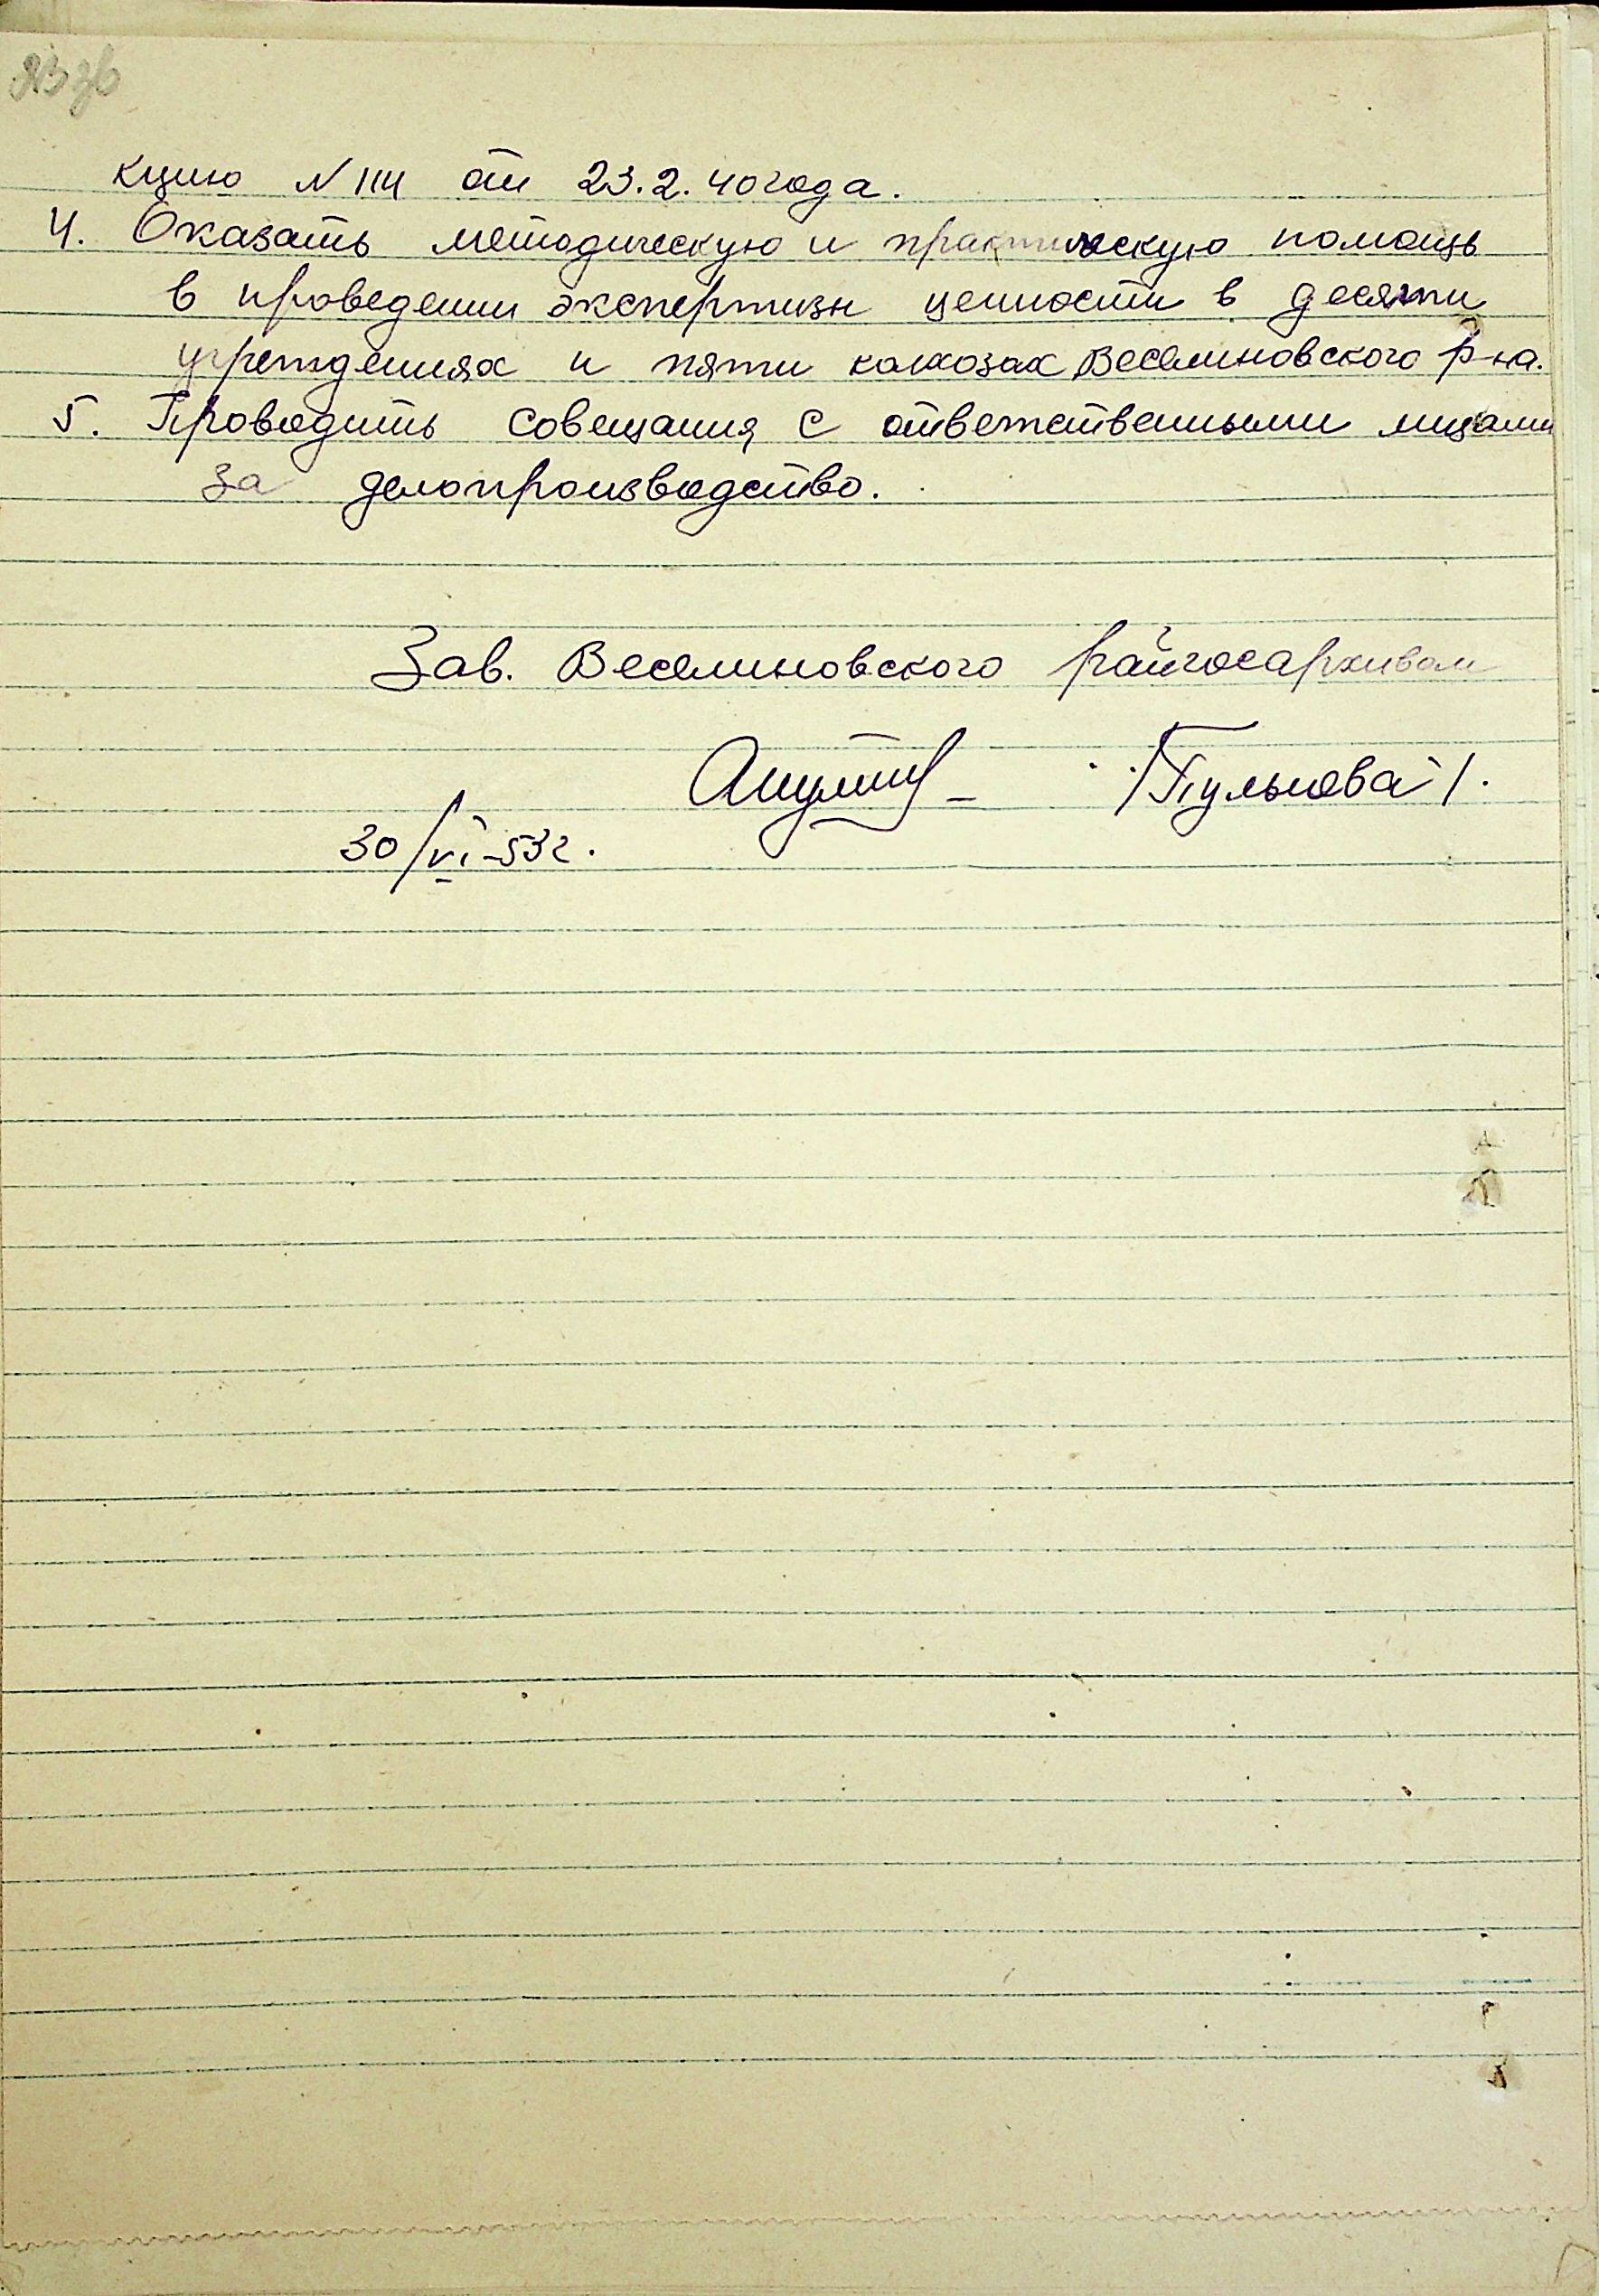 кцию N 114 от 23.2.40 года.
4. Оказать методическую и практическую помощь
в проведении экспертизы ценности в десяти
учреждениях и пяти колхозах Веселиновского р-на.
5. Проводить совещания с ответственными лицами
за делопроизводство.
Зав. Веселиновского райгосархивом
/Пулькова/.
30/VI-53г.